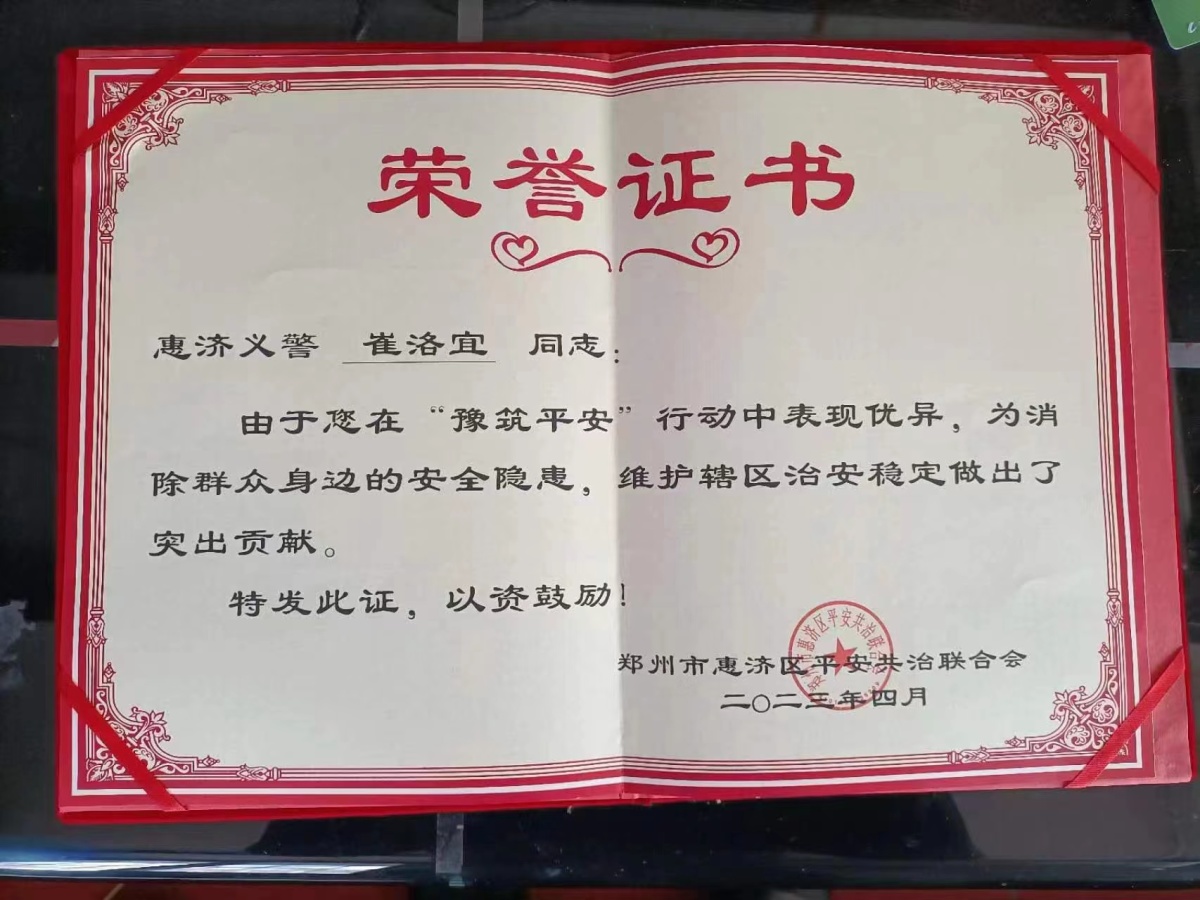 荣誉证书
惠济义警 崔洛宜 同志：
由于您在“豫筑平安”行动中表现优异，为消
除群众身边的安全隐患，维护辖区治安稳定做出了
突出贡献。
特发此证，以资鼓励！
郑州市惠济区平安共治联合会
二〇二三年四月
郑州市惠济区平安共治联合会